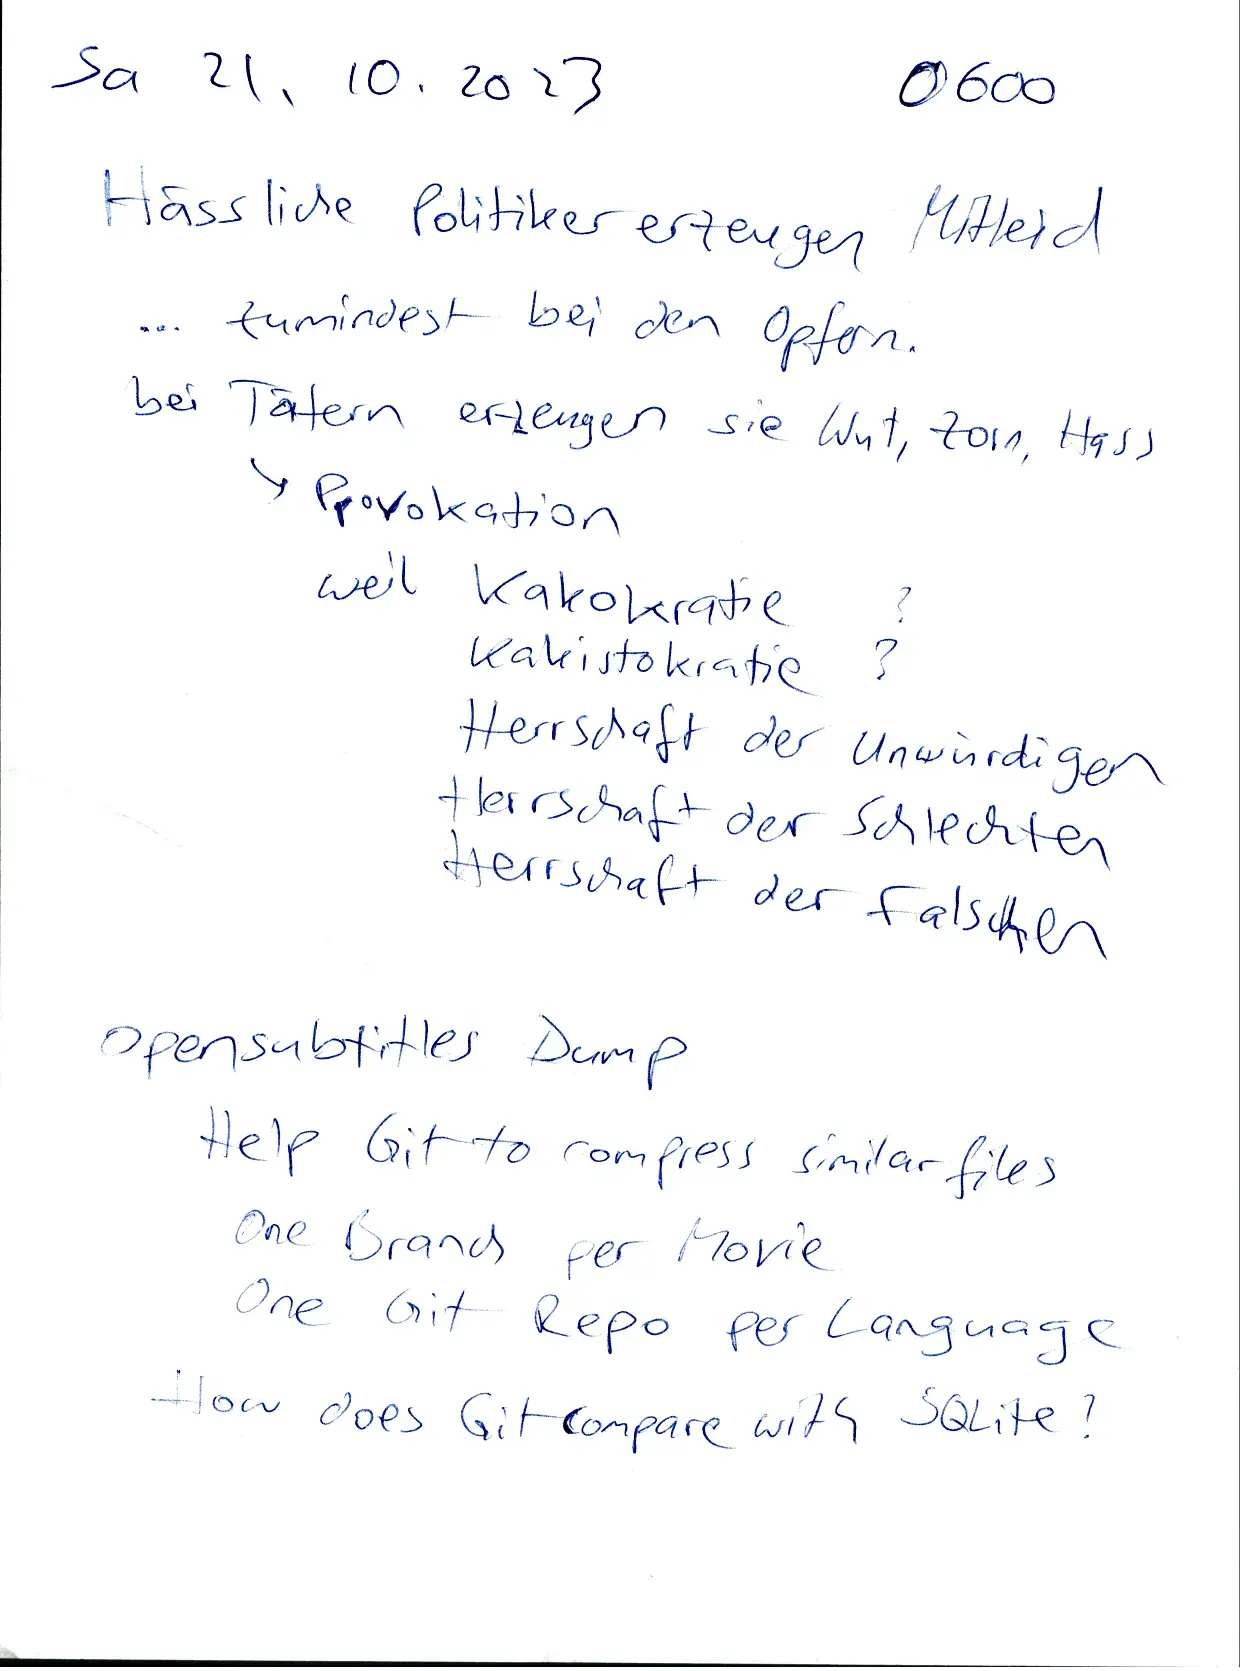 Sa 21. 10. 2023 0600
Hässliche Politiker erzeugen Mitleid
... zumindest bei den Opfern.
bei Tätern erzeugen sie Wut, Zorn, Hass
↘ Provokation
weil Kakokratie ?
Kakistokratie ?
Herrschaft der Unwürdigen
Herrschaft der Schlechten
Herrschaft der Falschen
Opensubtitles Dump
Help Git to compress similar files
One Branch per Movie
One Git Repo per Language
How does Git compare with SQLite?